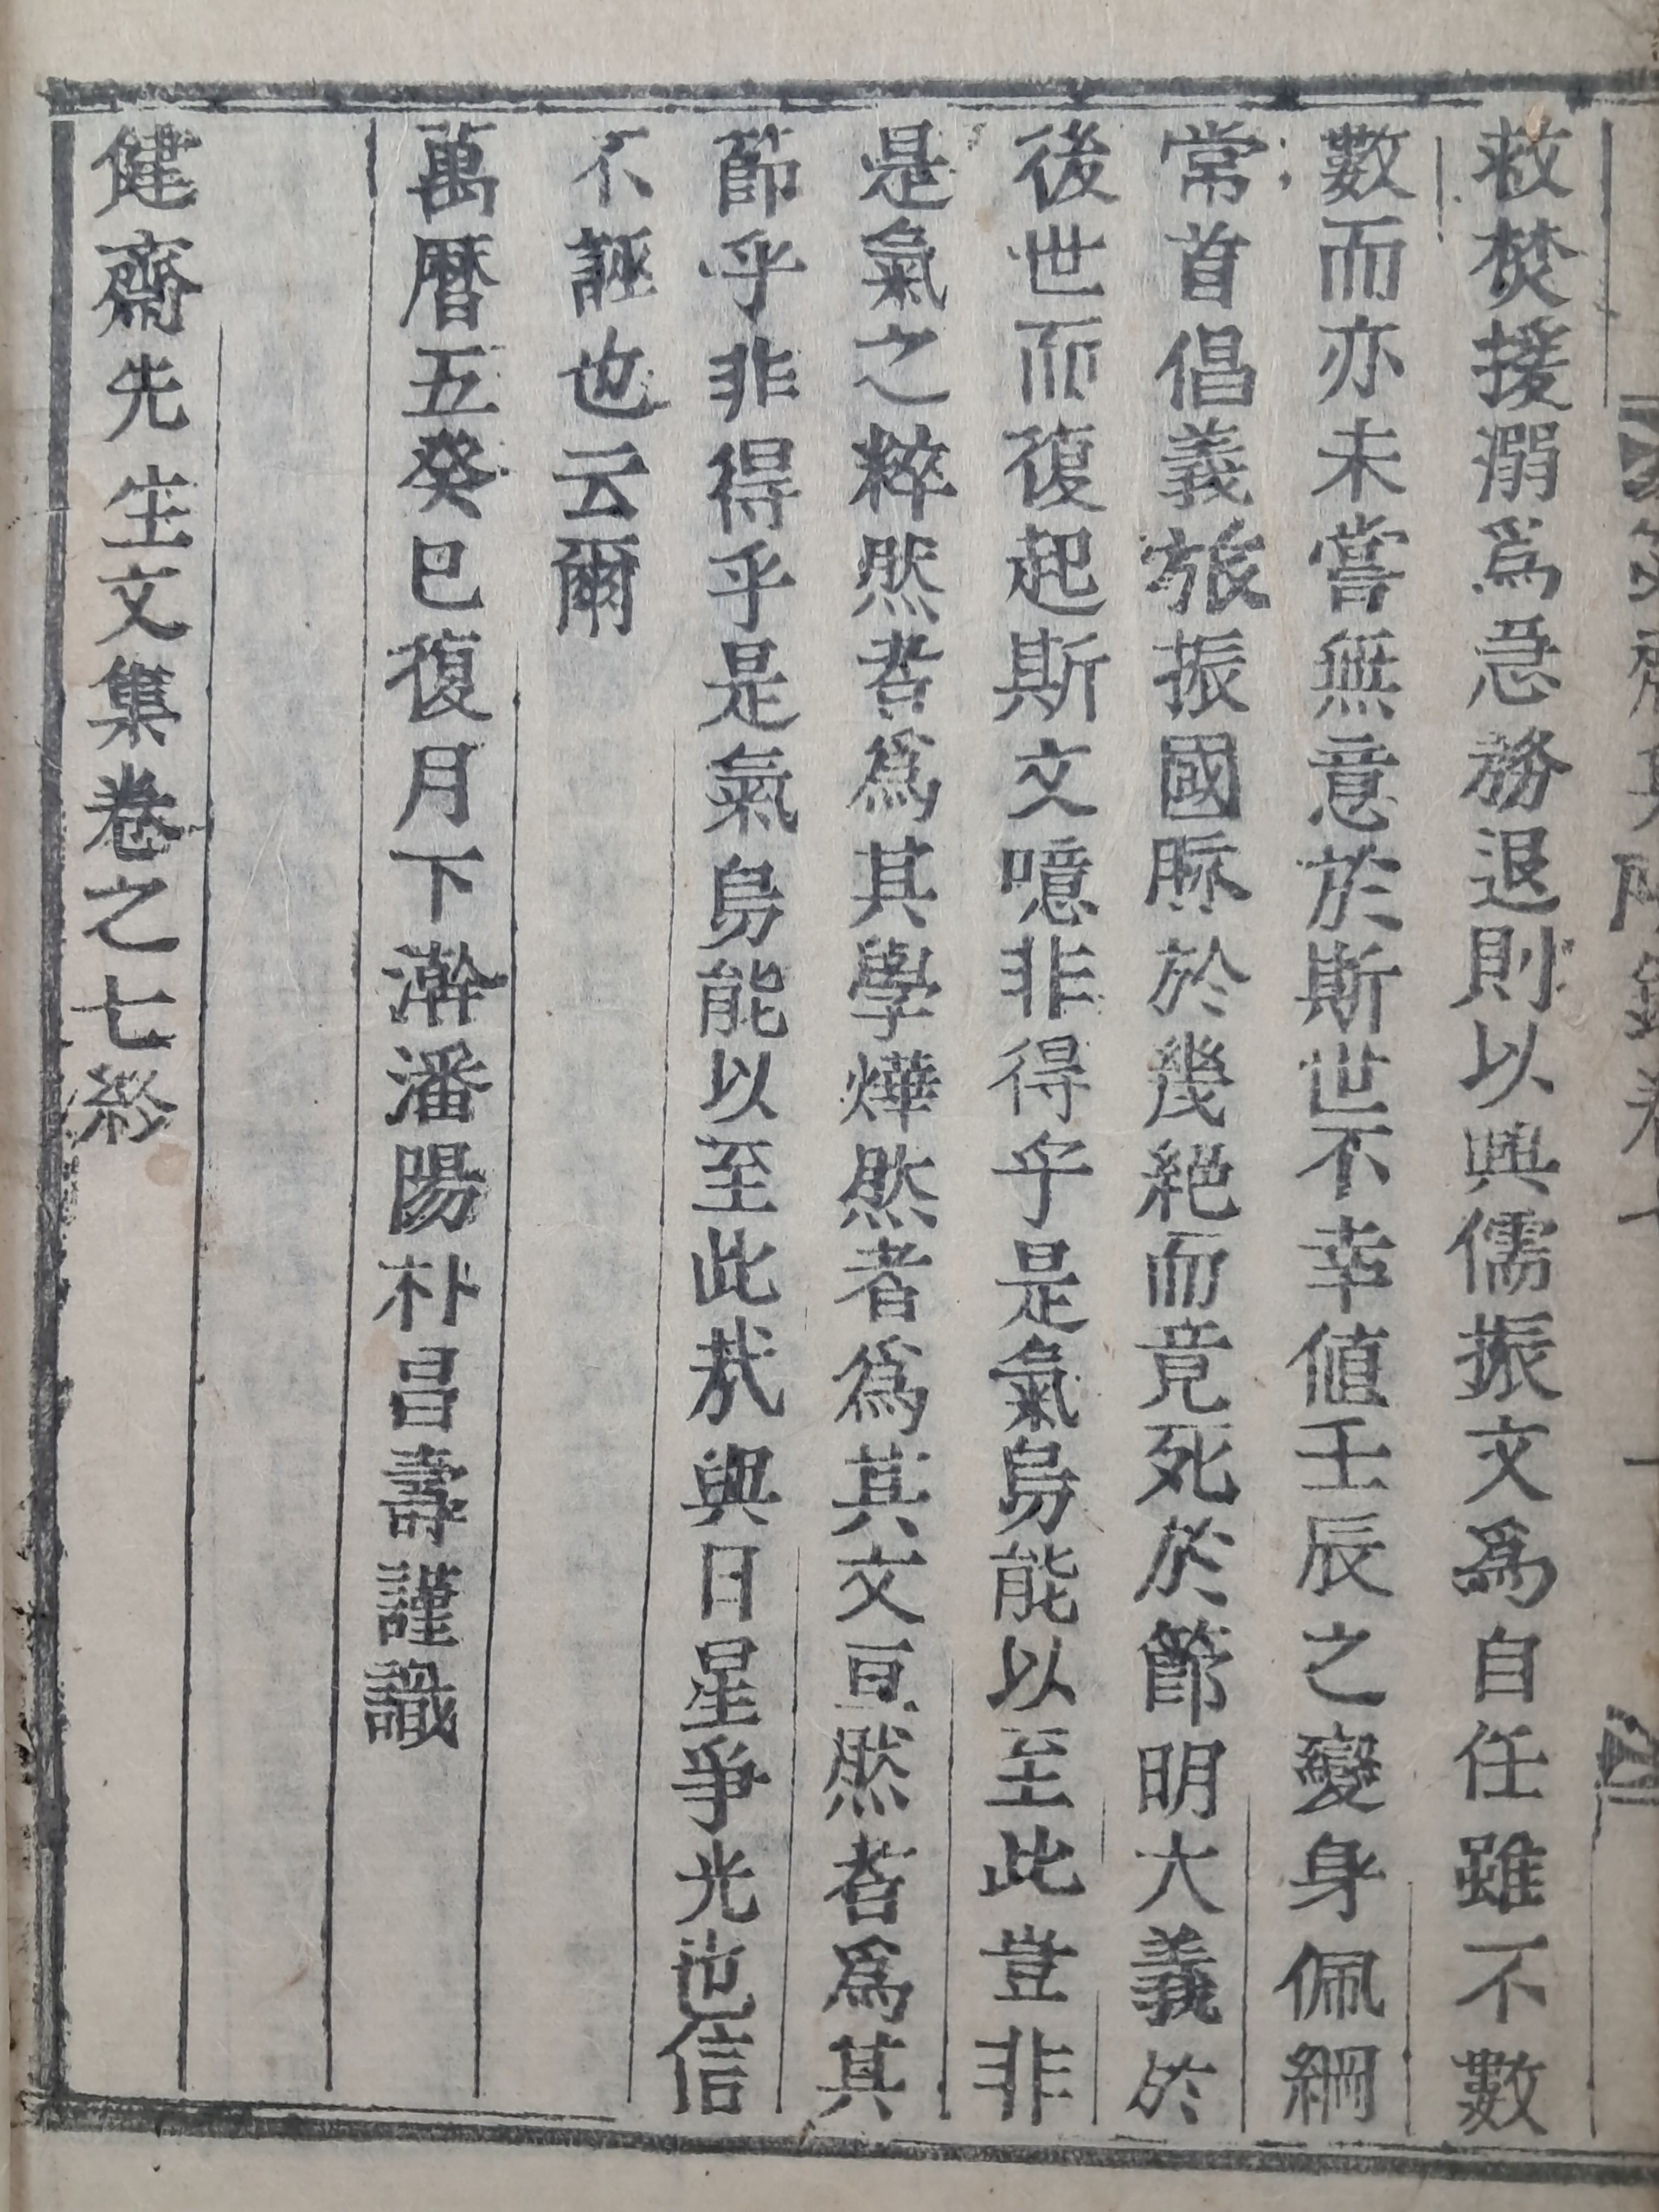 救焚援溺爲急務退則以興儒振文爲自任雖不數
數而亦未嘗無意於斯世不幸値壬辰之變身佩綱
常首倡義旅振國脉於幾絶而竟死於節明大義於
後世而復起斯文噫非得乎是氣烏能以至此豈非
是氣之粹然者爲其學燁然者爲其文亘然者爲其
節乎非得乎是氣烏能以至此哉與日星爭光也信
不誣也云爾
萬曆五癸巳復月下澣潘陽朴昌壽謹識
健齋先生文集卷之七終